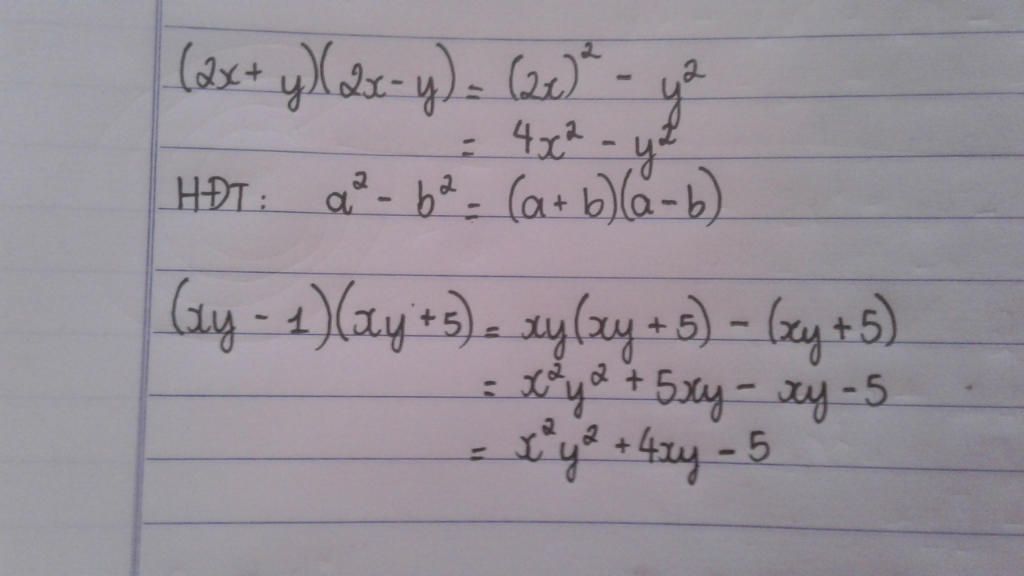 (2x + y)(2x - y) = (2x)² - y²
= 4x² - y²
HĐT: a² - b² = (a + b)(a - b)
(xy - 1)(xy + 5) = xy(xy + 5) - (xy + 5)
= x²y² + 5xy - xy - 5
= x²y² + 4xy - 5